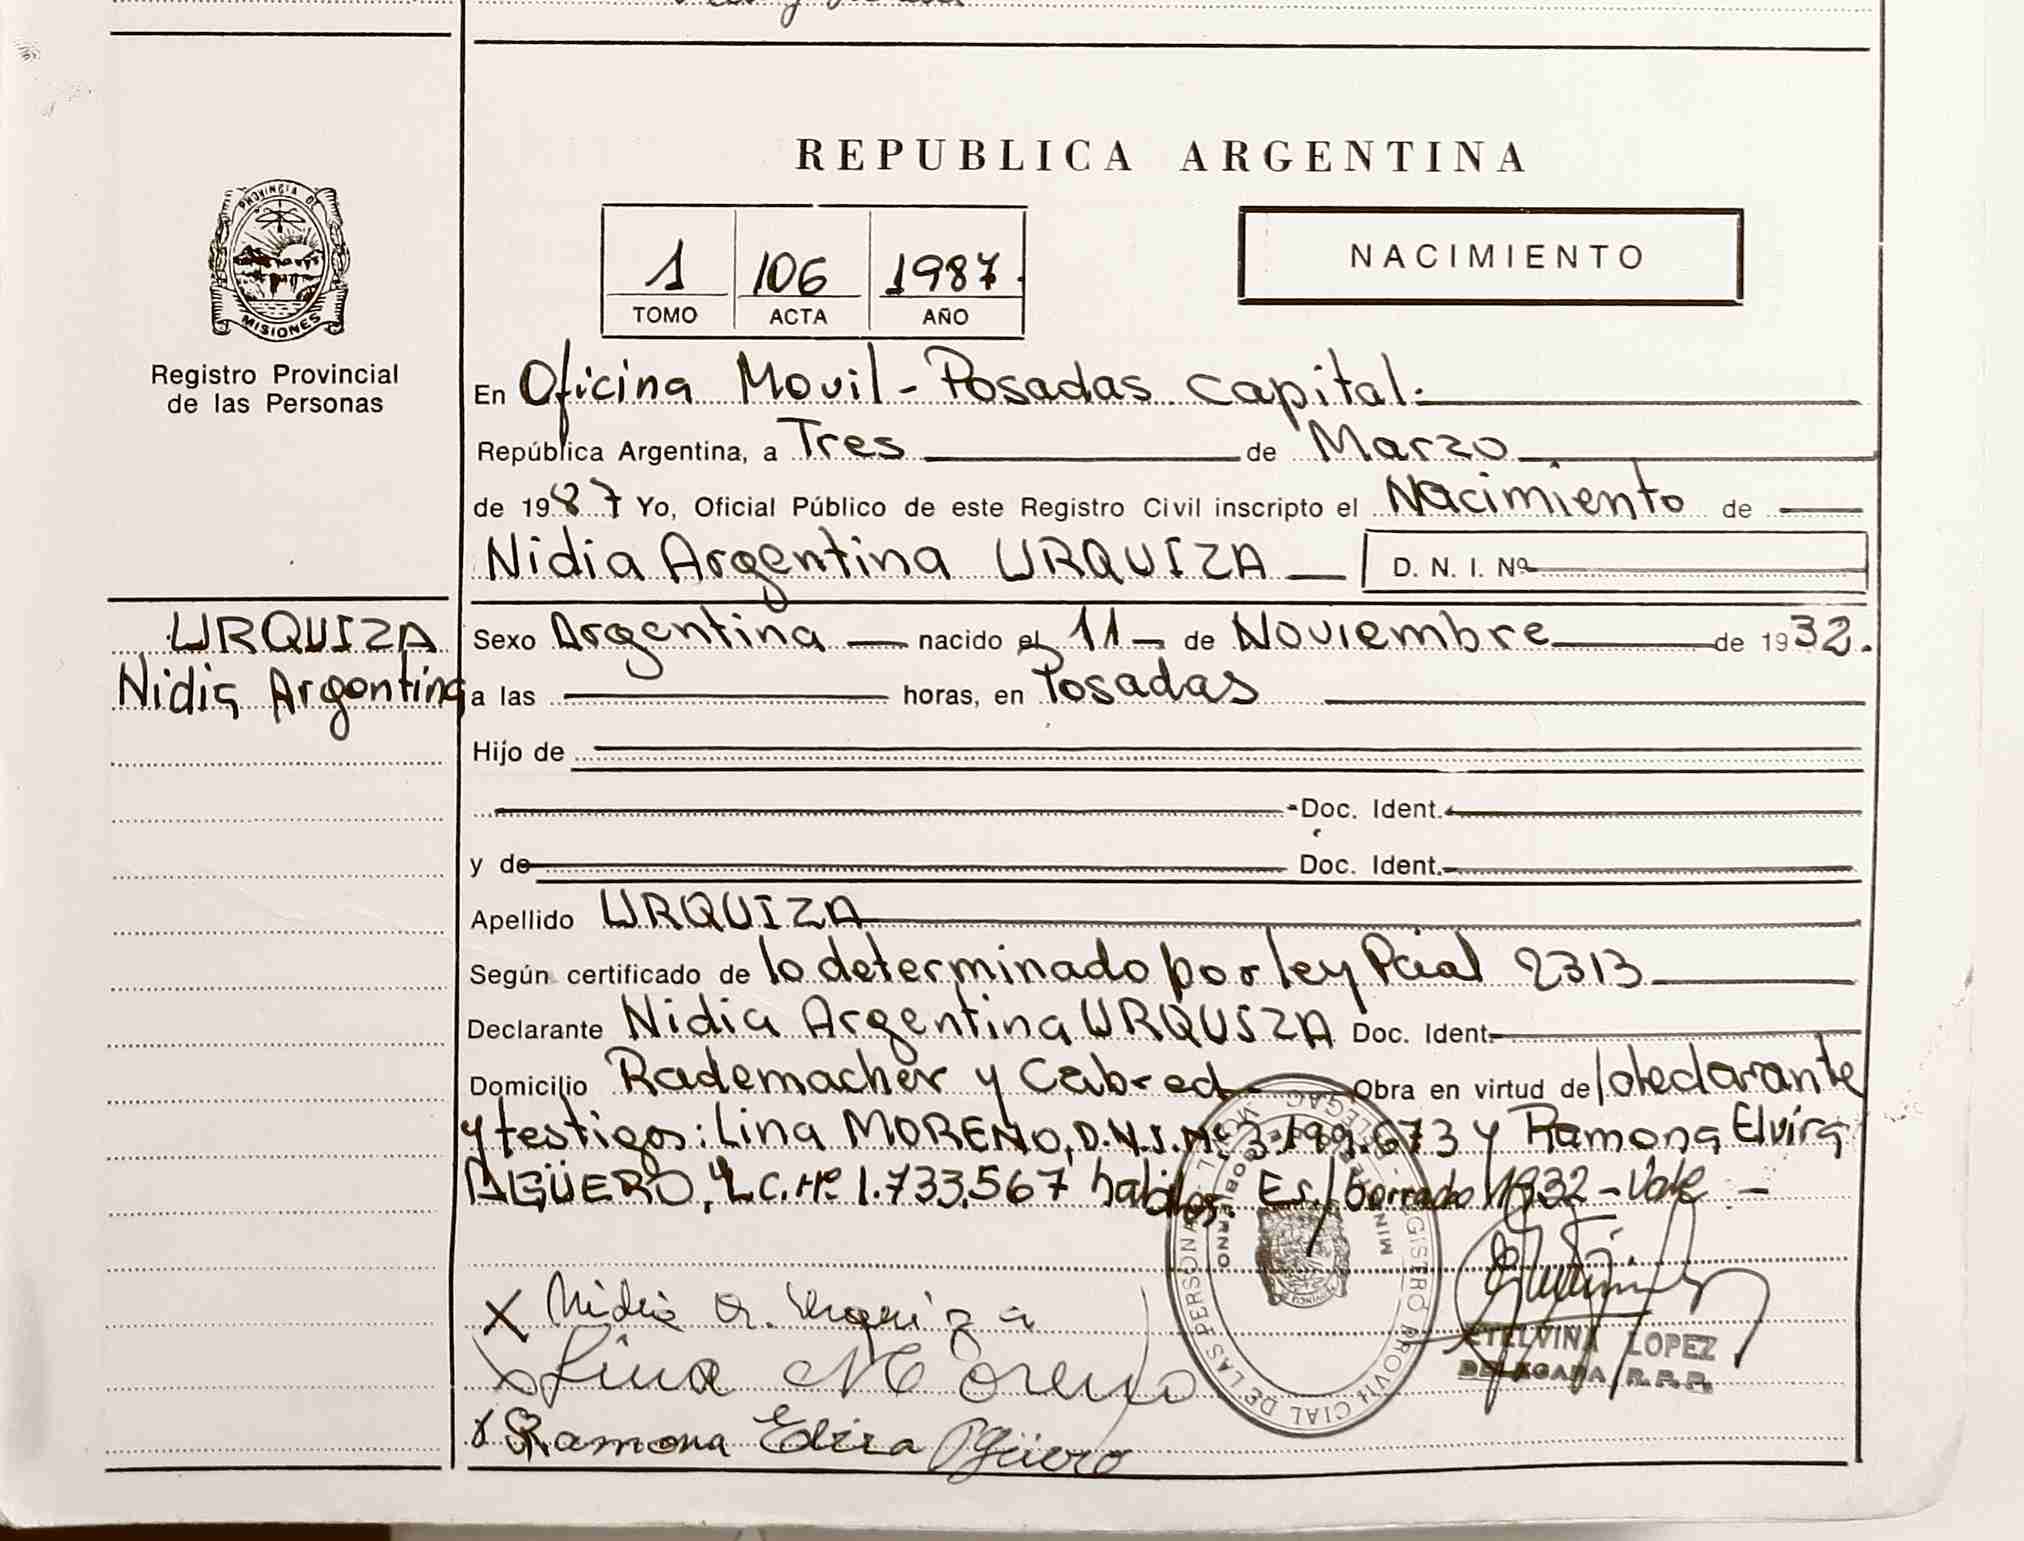 REPUBLICA ARGENTINA
PROVINCIA DE
MISIONES
Registro Provincial
de las Personas
1 106 1987.
TOMO ACTA AÑO
NACIMIENTO
En Oficina Movil - Posadas capital.
República Argentina, a Tres de Marzo
de 1987 Yo, Oficial Público de este Registro Civil inscripto el Nacimiento de
Nidia Argentina URQUIZA D. N. I. Nº
URQUIZA
Nidia Argentina
Sexo Argentina nacido el 11 de Noviembre de 1932.
a las horas, en Posadas
Hijo de
Doc. Ident.
y de Doc. Ident.
Apellido URQUIZA
Según certificado de lo determinado por ley Pcial 2313
Declarante Nidia Argentina URQUIZA Doc. Ident.
Domicilio Rademacher y Cabred Obra en virtud de lo declarante
y testigos: Lina MORENO, D.N.I. Nº 3.199.673 y Ramona Elvira
AGÜERO, L.C. Nº 1.733.567 habiles. Es/borrado 1932 - Vale -
X Nidia A. Urquiza
X Lina Moreno
X Ramona Elvira Agüero
REGISTRO PROVINCIAL DE LAS PERSONAS
ETELVINA LOPEZ
DELEGADA R.P.P.